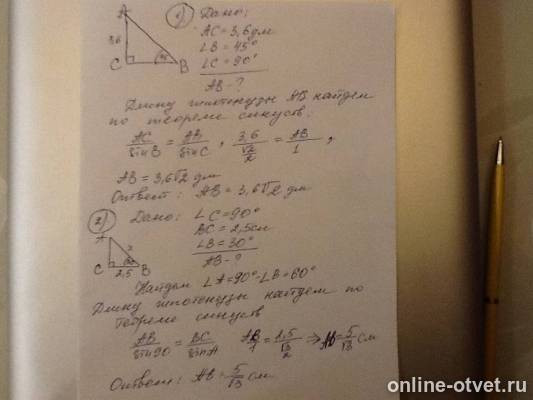 1) Дано:
A
AC = 3,6 дм
3,6
∠B = 45°
45
C
B
∠C = 90°
AB - ?
Длину гипотенузы AB найдем
по теореме синусов:
AC/sinB = AB/sinC, 3,6/(√2/2) = AB/1,
AB = 3,6√2 дм
Ответ: AB = 3,6√2 дм
2) Дано: ∠C = 90°
A
BC = 2,5 см
∠B = 30°
C
2,5
B
AB - ?
Найдем ∠A = 90° - ∠B = 60°
Длину гипотенузы найдем по
теореме синусов
AB/sin90 = BC/sinA AB/1 = 2,5/(√3/2) ⇒ AB = 5/√3 см
Ответ: AB = 5/√3 см
online-otvet.ru